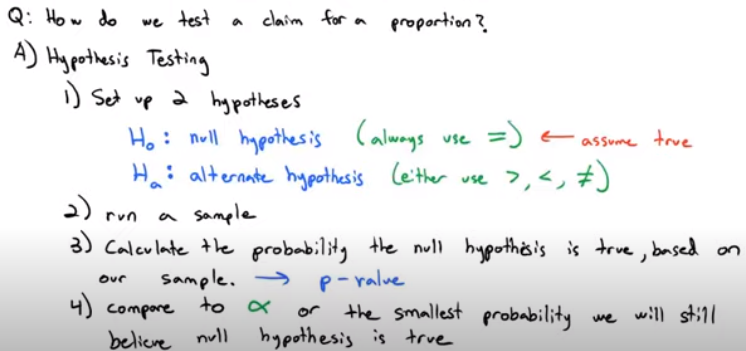 Q: How do we test a claim for a proportion?
A) Hypothesis Testing
1) Set up 2 hypotheses
H₀: null hypothesis (always use =) ← assume true
Hₐ: alternate hypothesis (either use >, <, ≠)
2) run a sample
3) Calculate the probability the null hypothesis is true, based on
our sample. → p-value
4) compare to α or the smallest probability we will still
believe null hypothesis is true